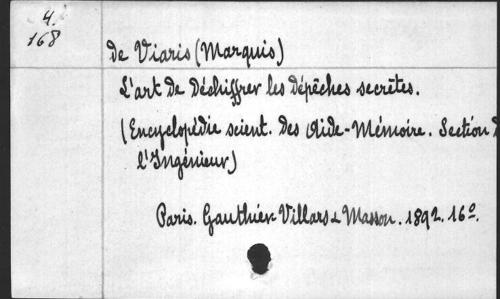 4.
168
De Viaris (Marquis)
L'art De Déchiffrer les Dépêches secrètes.
(Encyclopédie scient. Des Aide-Mémoire. Section D
l'Ingénieur)
Paris. Gauthier-Villars & Masson. 1892. 16º.